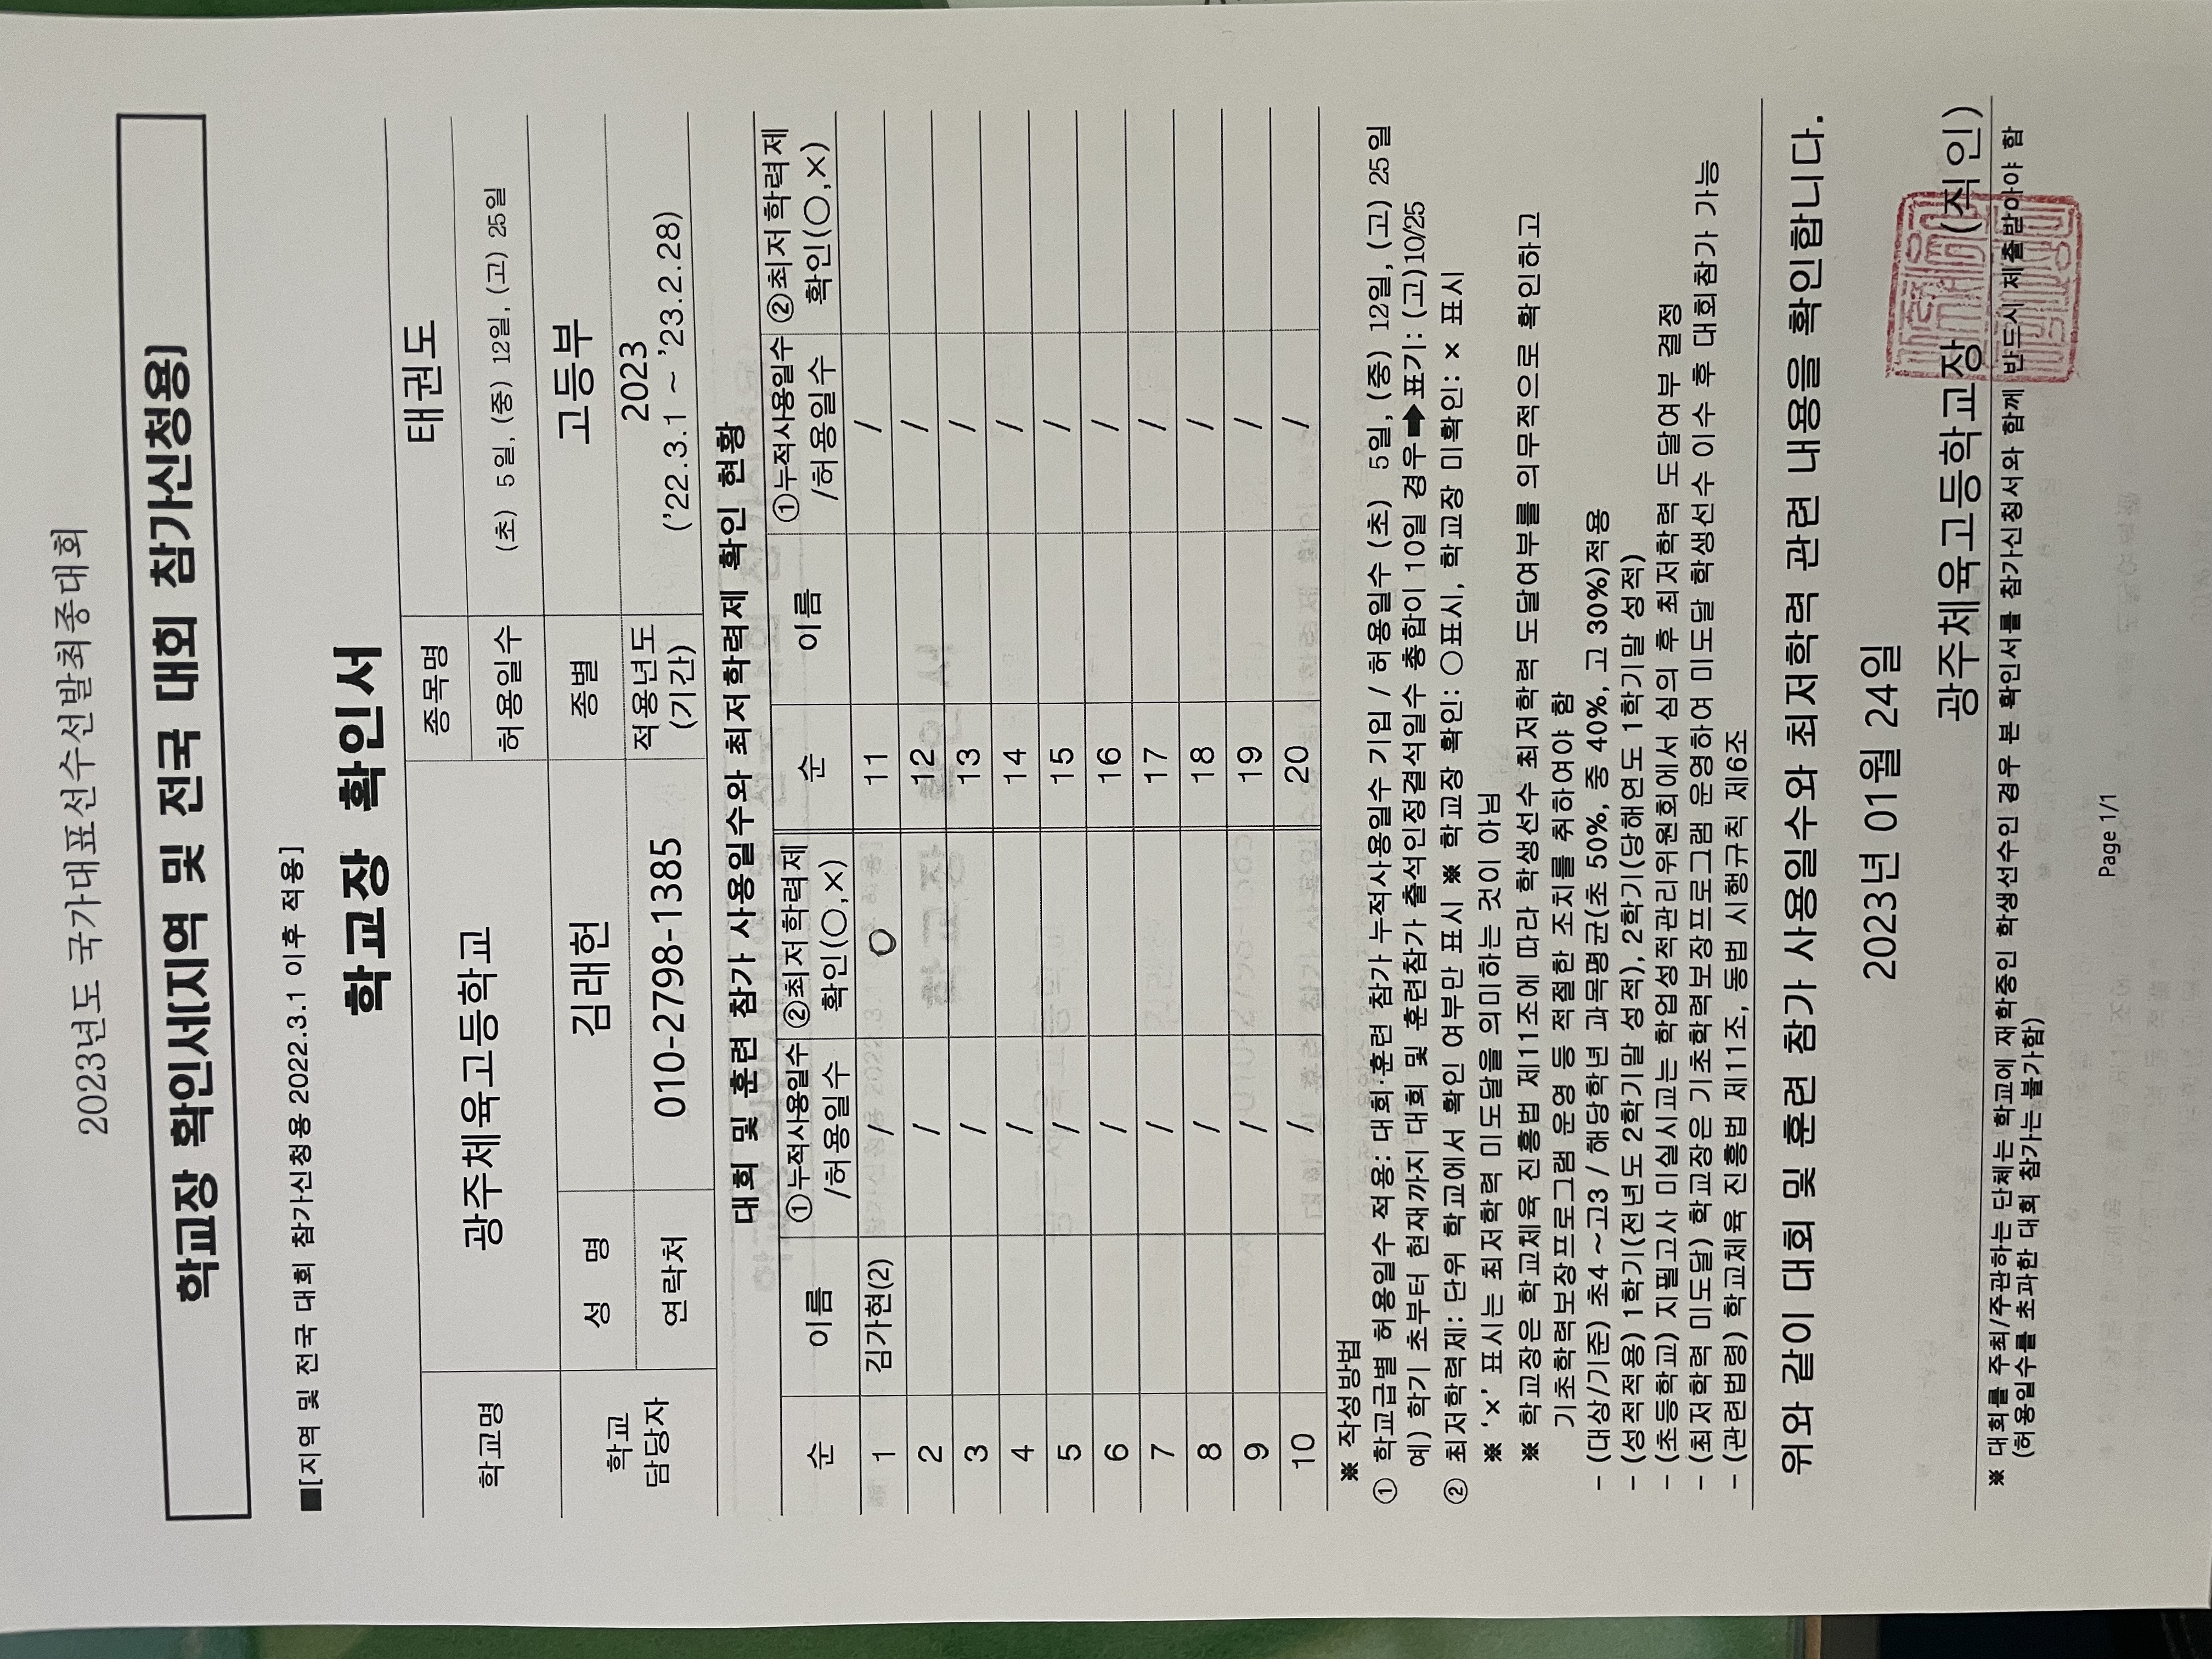 2023년도 국가대표선수선발최종대회
학교장 확인서[지역 및 전국 대회 참가신청용]
■[지역 및 전국 대회 참가신청용 2022.3.1 이후 적용]
학교장 확인서
학교명 광주체육고등학교 종목명 태권도
허용일수 (초) 5일, (중) 12일, (고) 25일
학교 담당자 성 명 김래헌 종별 고등부
연락처 010-2798-1385 적용년도 (기간) 2023
('22.3.1 ~ '23.2.28)
대회 및 훈련 참가 사용일수와 최저학력제 확인 현황
순 이름 ①누적사용일수 /허용일수 ②최저학력제 확인(○,×) 순 이름 ①누적사용일수 /허용일수 ②최저학력제 확인(○,×)
1 김가현(2) / O 11 /
2 / 12 /
3 / 13 /
4 / 14 /
5 / 15 /
6 / 16 /
7 / 17 /
8 / 18 /
9 / 19 /
10 / 20 /
※ 작성방법
① 학교급별 허용일수 적용: 대회·훈련 참가 누적사용일수 기입 / 허용일수 (초) 5일, (중) 12일, (고) 25일
예) 학기 초부터 현재까지 대회 및 훈련참가 출석인정결석일수 총합이 10일 경우➡표기: (고)10/25
② 최저학력제: 단위 학교에서 확인 여부만 표시 ※ 학교장 확인: ○표시, 학교장 미확인: × 표시
※ '×' 표시는 최저학력 미도달을 의미하는 것이 아님
※ 학교장은 학교체육 진흥법 제11조에 따라 학생선수 최저학력 도달여부를 의무적으로 확인하고
기초학력보장프로그램 운영 등 적절한 조치를 취하여야 함
- (대상/기준) 초4 ~고3 / 해당학년 과목평균(초 50%, 중 40%, 고 30%)적용
- (성적적용) 1학기(전년도 2학기말 성적), 2학기(당해연도 1학기말 성적)
- (초등학교) 지필고사 미실시교는 학업성적관리위원회에서 심의 후 최저학력 도달여부 결정
- (최저학력 미도달) 학교장은 기초학력보장프로그램 운영하여 미도달 학생선수 이수 후 대회참가 가능
- (관련법령) 학교체육 진흥법 제11조, 동법 시행규칙 제6조
위와 같이 대회 및 훈련 참가 사용일수와 최저학력 관련 내용을 확인합니다.
2023년 01월 24일
광주체육고등학교장 (직인)
※ 대회를 주최/주관하는 단체는 학교에 재학중인 학생선수인 경우 본 확인서를 참가신청서와 함께 반드시 제출받아야 함
(허용일수를 초과한 대회 참가는 불가함)
Page 1/1